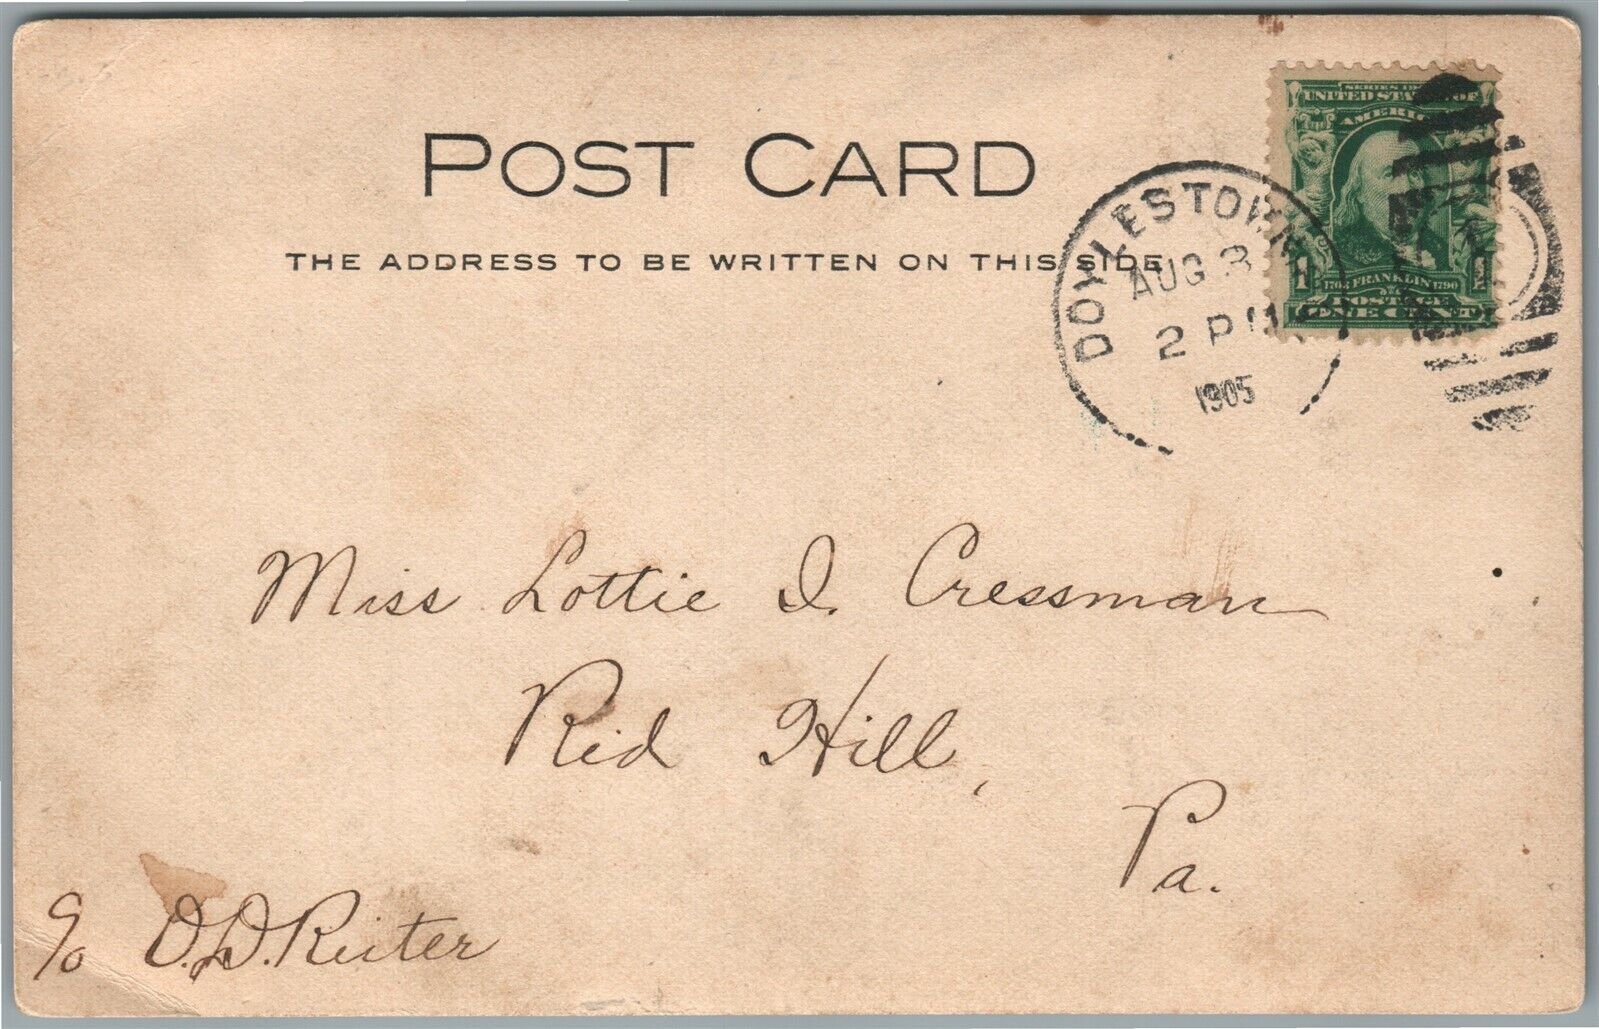 POST CARD
THE ADDRESS TO BE WRITTEN ON THIS SIDE
DOYLESTOWN
AUG 3
2 PM
1905
UNITED STATES OF
AMERICA
1 1
1706 FRANKLIN 1790
POSTAGE
ONE CENT
Miss Lottie D. Cressman
Red Hill,
Pa.
c/o O.D. Reiter